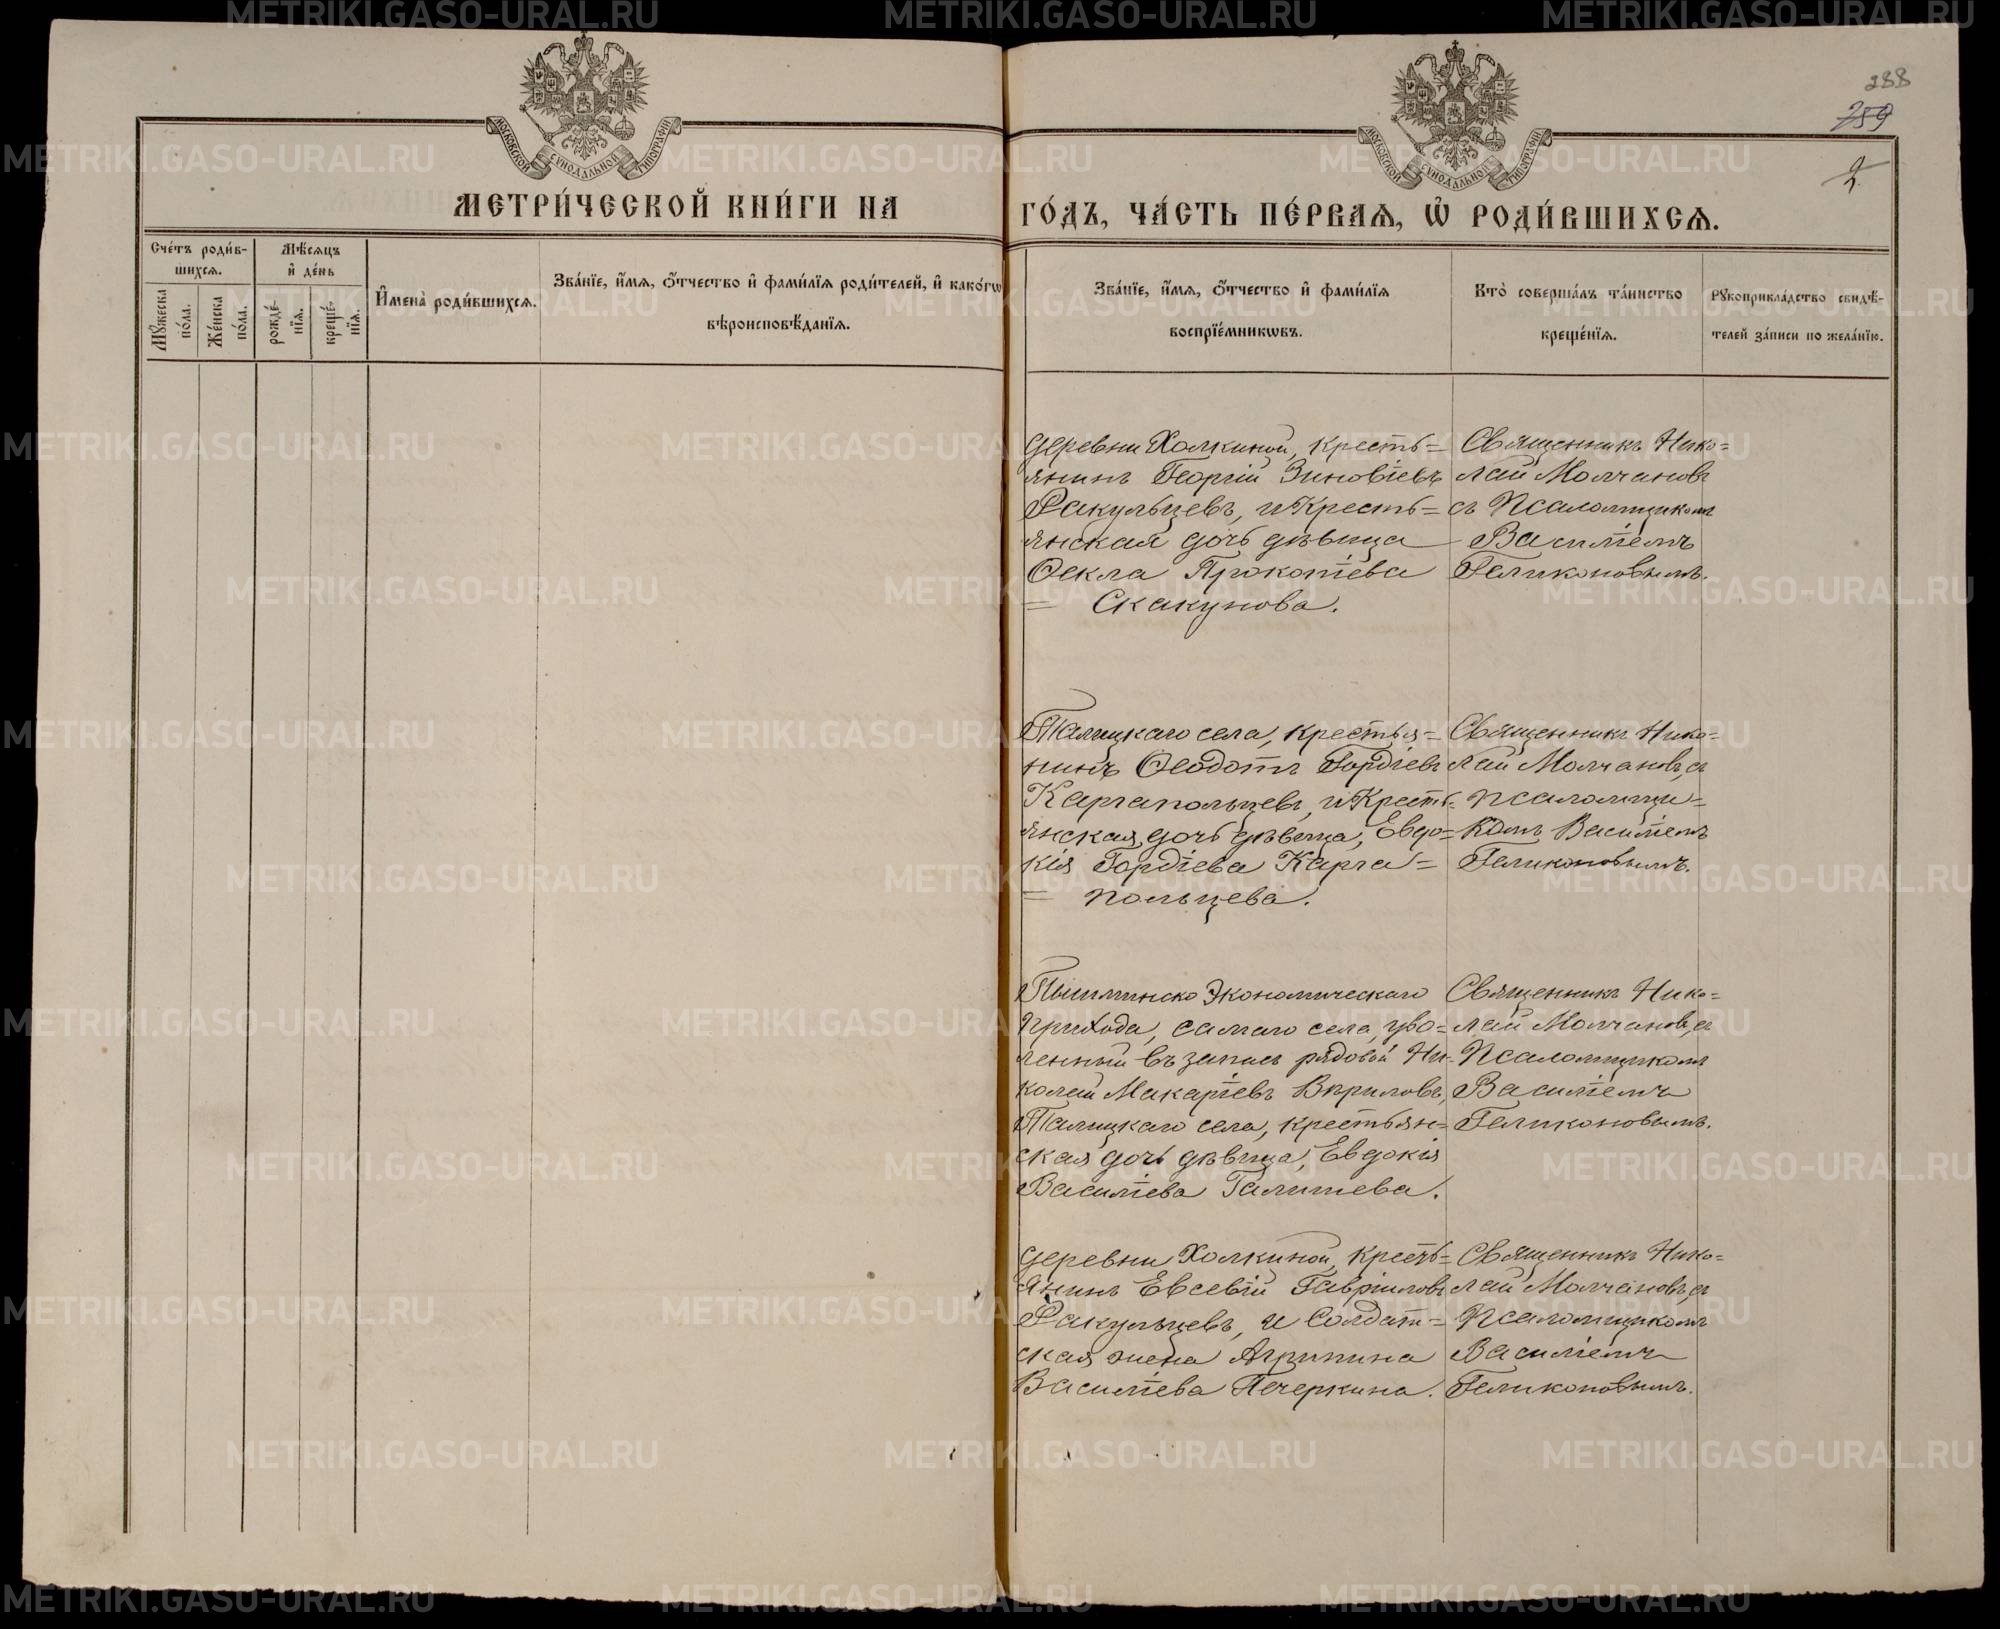 288
259
2
МОСКОВСКОЙ СѴНОДАЛЬНОЙ ТИПОГРАФІИ
МОСКОВСКОЙ СѴНОДАЛЬНОЙ ТИПОГРАФІИ
МЕТРИ́ЧЕСКОЙ КНИ́ГИ НА
ГО́ДЪ, ЧА́СТЬ ПЕ́РВАѦ, Ѽ РОДИ́ВШИХСѦ.
Сче́тъ роди́в-
шихсѧ.
Мꙋ́жеска
по́ла.
Же́нска
по́ла.
Мѣ́сѧцъ
и҆ де́нь
рожде́-
нїѧ.
креще́-
нїѧ.
И҆мена̀ роди́вшихсѧ.
Зва́нїе, и҆́мѧ, ѻ҆́тчество и҆ фами́лїѧ роди́телей, и҆ како́гѡ
вѣроисповѣ́данїѧ.
Зва́нїе, и҆́мѧ, ѻ҆́тчество и҆ фами́лїѧ
воспрїе́мникѡвъ.
Кто̀ соверша́лъ та́инство
креще́нїѧ.
Рꙋкоприкла́дство свидѣ́-
телей за́писи по жела́нїю.
Деревни Холкиной, кресть=
янинъ Георгій Зиновіевъ
Ракульцевъ, и Кресть=
янская дочь дѣвица
Ѳекла Прокопіева
= Скакунова.
Священникъ Нико=
лай Молчановъ
съ Псаломщикомъ
Василіемъ
Геликоновымъ.
Талицкаго села, крестья=
нинъ Ѳеодотъ Гордіевъ
Каргапольцевъ, и Кресть=
янская дочь дѣвица, Евдо=
кія Гордіева Карга=
= польцева.
Священникъ Нико=
лай Молчановъ, съ
псаломщи=
комъ Василіемъ
Геликоновымъ.
Пышминско Экономическаго
прихода, самаго села, уво=
ленный въ запасъ рядовой Ни=
колай Макаріевъ Вѣриловъ,
Талицкаго села, крестьян=
ская дочь дѣвица, Евдокія
Василіева Галишева.
Священникъ Нико=
лай Молчановъ, съ
Псаломщикомъ
Василіемъ
Геликоновымъ.
Деревни Холкиной, кресть=
янинъ Евсевій Гавріиловъ
Ракульцевъ, и Солдат=
ская жена Агрипина
Василіева Печеркина.
Священникъ Нико=
лай Молчановъ, съ
Псаломщикомъ
Василіемъ
Геликоновымъ.
METRIKI.GASO-URAL.RU